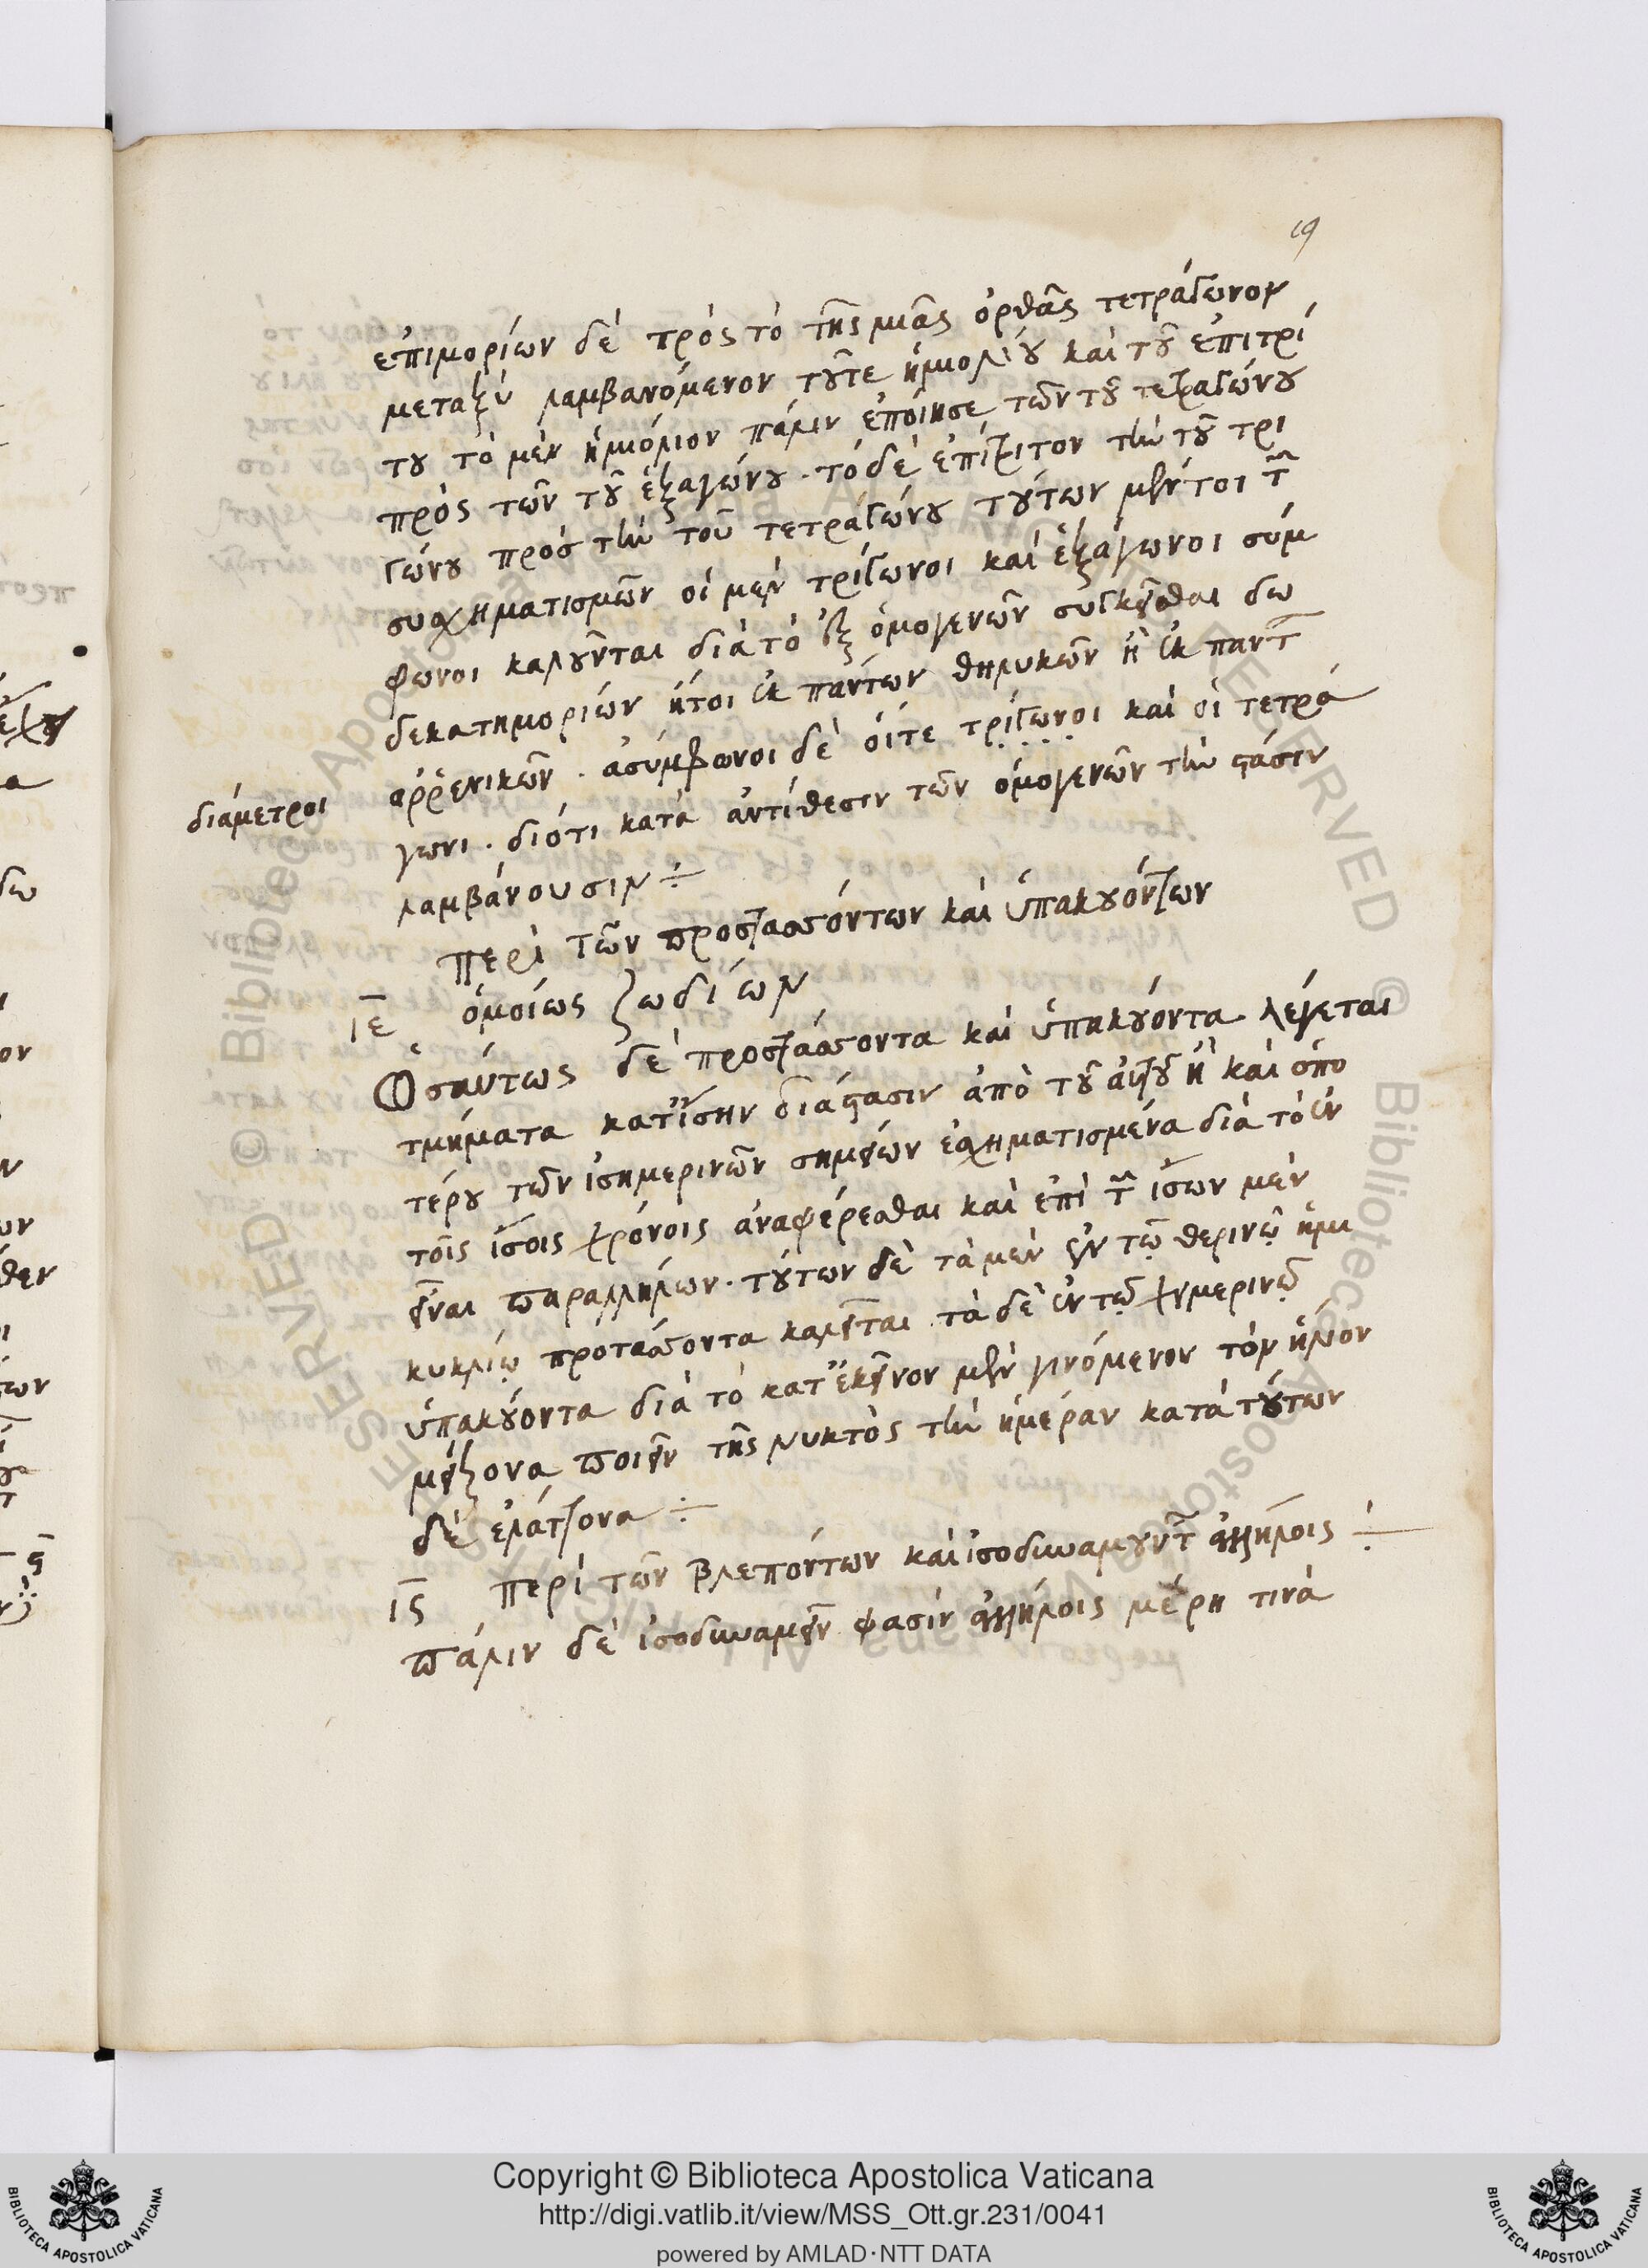 19
ἐπιμορίων δὲ πρὸς τὸ τῆς μιᾶς ὀρθᾶς τετράγωνον
μεταξὺ λαμβανόμενον τοῦτε ἡμιολίου καὶ τοῦ ἐπιτρί
του τὸ μὲν ἡμιόλιον πάλιν ἐποίησε τῶν τοῦ τετραγώνου
πρὸς τῶν τοῦ ἑξαγώνου · τὸ δὲ ἐπίτριτον τὴν τοῦ τρι
γώνου πρὸς τὴν τοῦ τετραγώνου τούτων μέντοι τῶν
συσχηματισμῶν οἱ μὲν τρίγωνοι καὶ ἑξάγωνοι σύμ
φωνοι καλοῦνται διὰ τὸ ἐξ ὁμογενῶν συγκεῖσθαι δω
δεκατημορίων ἤτοι ἐκ πάντων θηλυκῶν ἢ ἐκ πάντων
ἀῤῥενικῶν · ἀσύμφωνοι δὲ οἵτε τρίγωνοι καὶ οἱ τετρά
διάμετροι
γωνι · διότι κατὰ ἀντίθεσιν τῶν ὁμογενῶν τὴν στάσιν
λαμβάνουσιν ÷
Περὶ τῶν προστασσόντων καὶ ὑπακουόντων
ιε ὁμοίως ζωδίων
Ὡσαύτως δὲ προστάσσοντα καὶ ὑπακούοντα λέγεται
τμήματα κατ' ἴσην διάστασιν ἀπὸ τοῦ αὐτοῦ ἢ καὶ ὁπο
τέρου τῶν ἰσημερινῶν σημείων ἐσχηματισμένα διὰ τὸ ἐν
τοῖς ἴσοις χρόνοις ἀναφέρεσθαι καὶ ἐπὶ τῶν ἴσων μὲν
εἶναι παραλλήλων · τούτων δὲ τὰ μὲν ἐν τῷ θερινῷ ἡμι
κυκλίῳ προτάσσοντα καλεῖται τὰ δὲ ἐν τῷ χειμερινῷ
ὑπακούοντα διὰ τὸ κατ' ἐκεῖνον μὲν γινόμενον τὸν ἥλιον
μείζονα ποιεῖν τῆς νυκτὸς τὴν ἡμέραν κατὰ τούτων
δὲ ἐλάττονα ÷
ις Περὶ τῶν βλεπόντων καὶ ἰσοδυναμούντων ἀλλήλοις ÷
Πάλιν δὲ ἰσοδυναμεῖν φασὶν ἀλλήλοις μέρη τινὰ
Copyright © Biblioteca Apostolica Vaticana
http://digi.vatlib.it/view/MSS_Ott.gr.231/0041
powered by AMLAD·NTT DATA
BIBLIOTECA APOSTOLICA VATICANA
BIBLIOTECA APOSTOLICA VATICANA